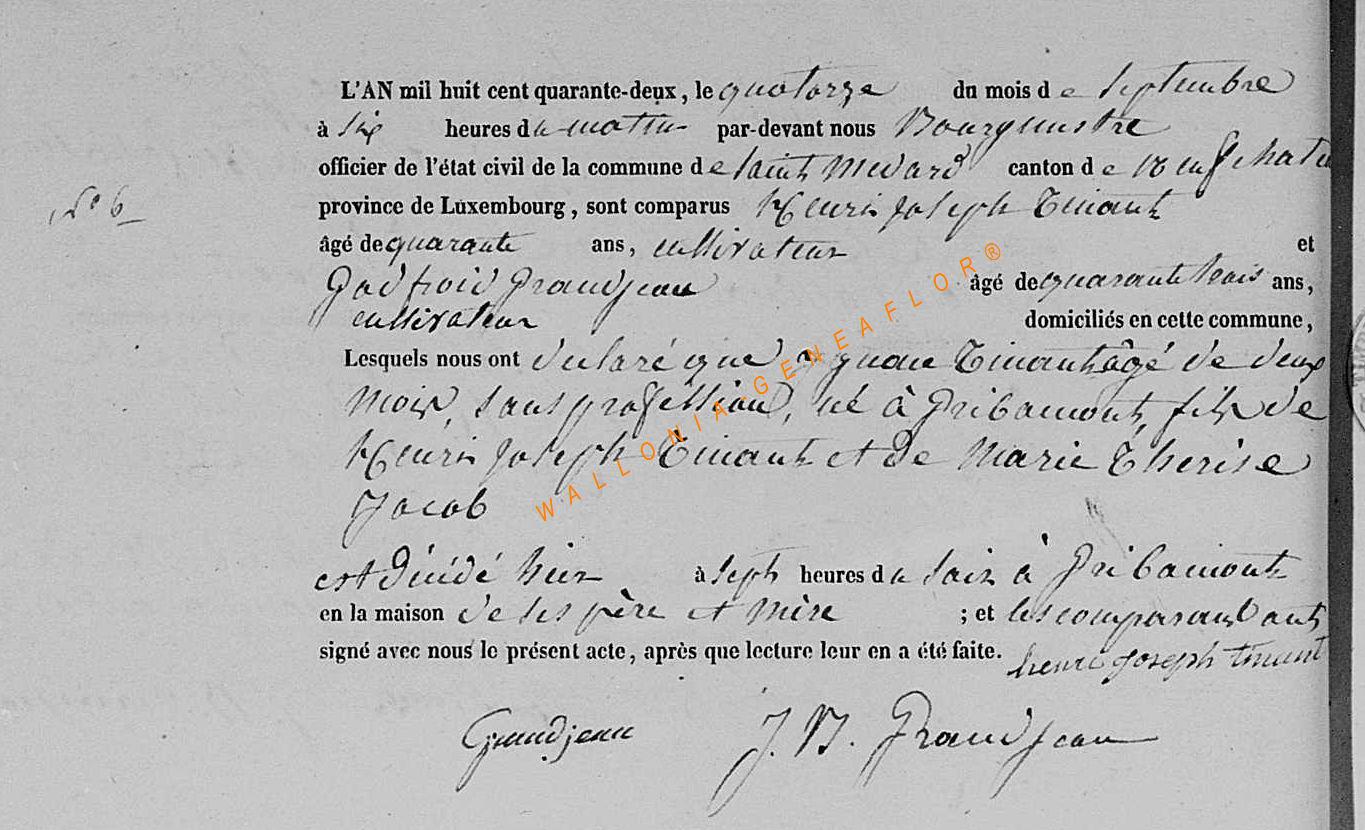 L'AN mil huit cent quarante-deux, le quatorze du mois de Septembre
à Six heures du matin par-devant nous Bourgmestre
officier de l'état civil de la commune de Saint Medard canton de Neufchateau
N° 6
province de Luxembourg, sont comparus Henri Joseph Tinant
âgé de quarante ans, cultivateur et
Godfroid Grandjean âgé de quarante trois ans,
cultivateur domiciliés en cette commune,
Lesquels nous ont declaré que Tinant âgé de deux
mois, sans profession, né à Gribaumont, fils de
Henri Joseph Tinant et de Marie Therese
Jacob
est décédé hier à Sept heures du Soir à Gribaumont
en la maison de ses père et mère ; et les comparants ont
signé avec nous le présent acte, après que lecture leur en a été faite.
henri Joseph tinant
Grandjean J. N. Grandjean
WALLONIA-GENEAFLOR®